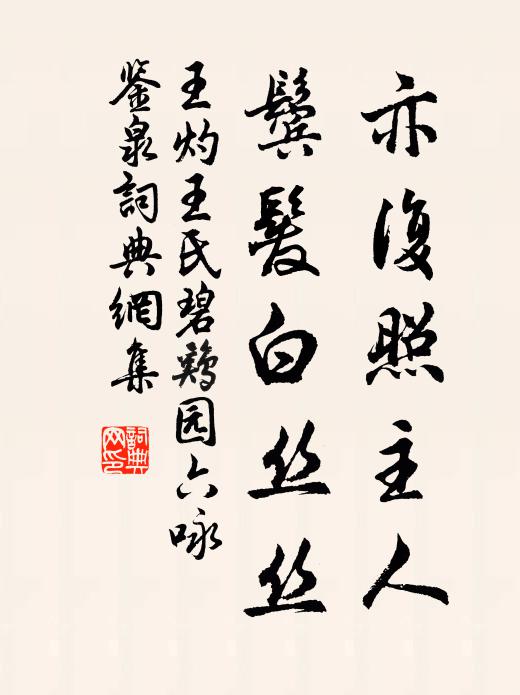 亦復照主人
鬢髮白丝丝
王灼王氏碧鷄园六咏
鉴泉詞典網集
詞典网印